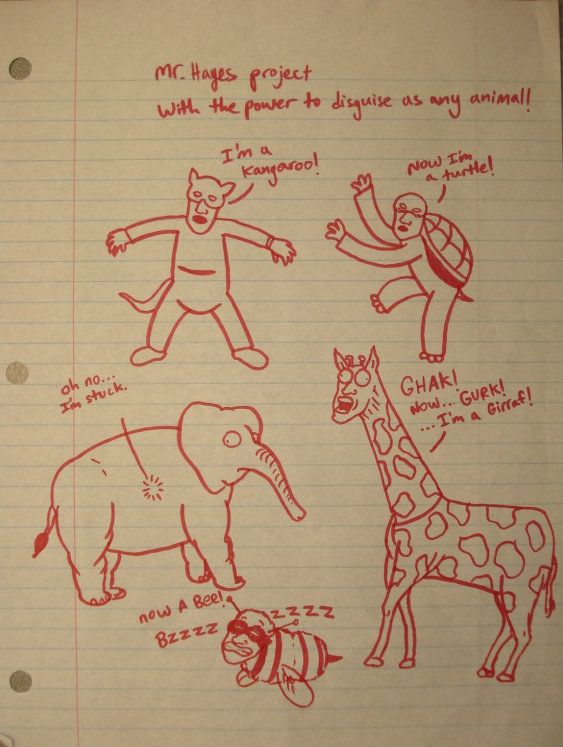 Mr. Hayes project
With the power to disguise as any animal!
I'm a
kangaroo!
Now I'm
a turtle!
oh no...
I'm stuck.
GHAK!
Now... GURK!
...I'm a Girraf!
now A Bee!
BZZZZ
ZZZZ